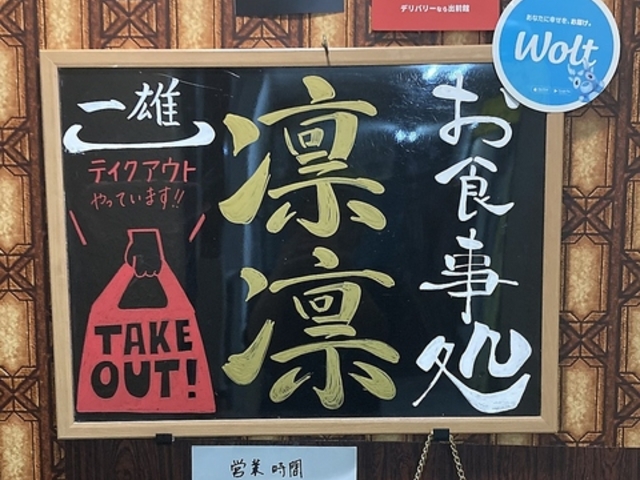 デリバリーなら出前館
あなたに幸せを、お届け。
Wolt
お食事処
凛凛
一雄
テイクアウト
やっています!!
TAKE
OUT!
営業時間